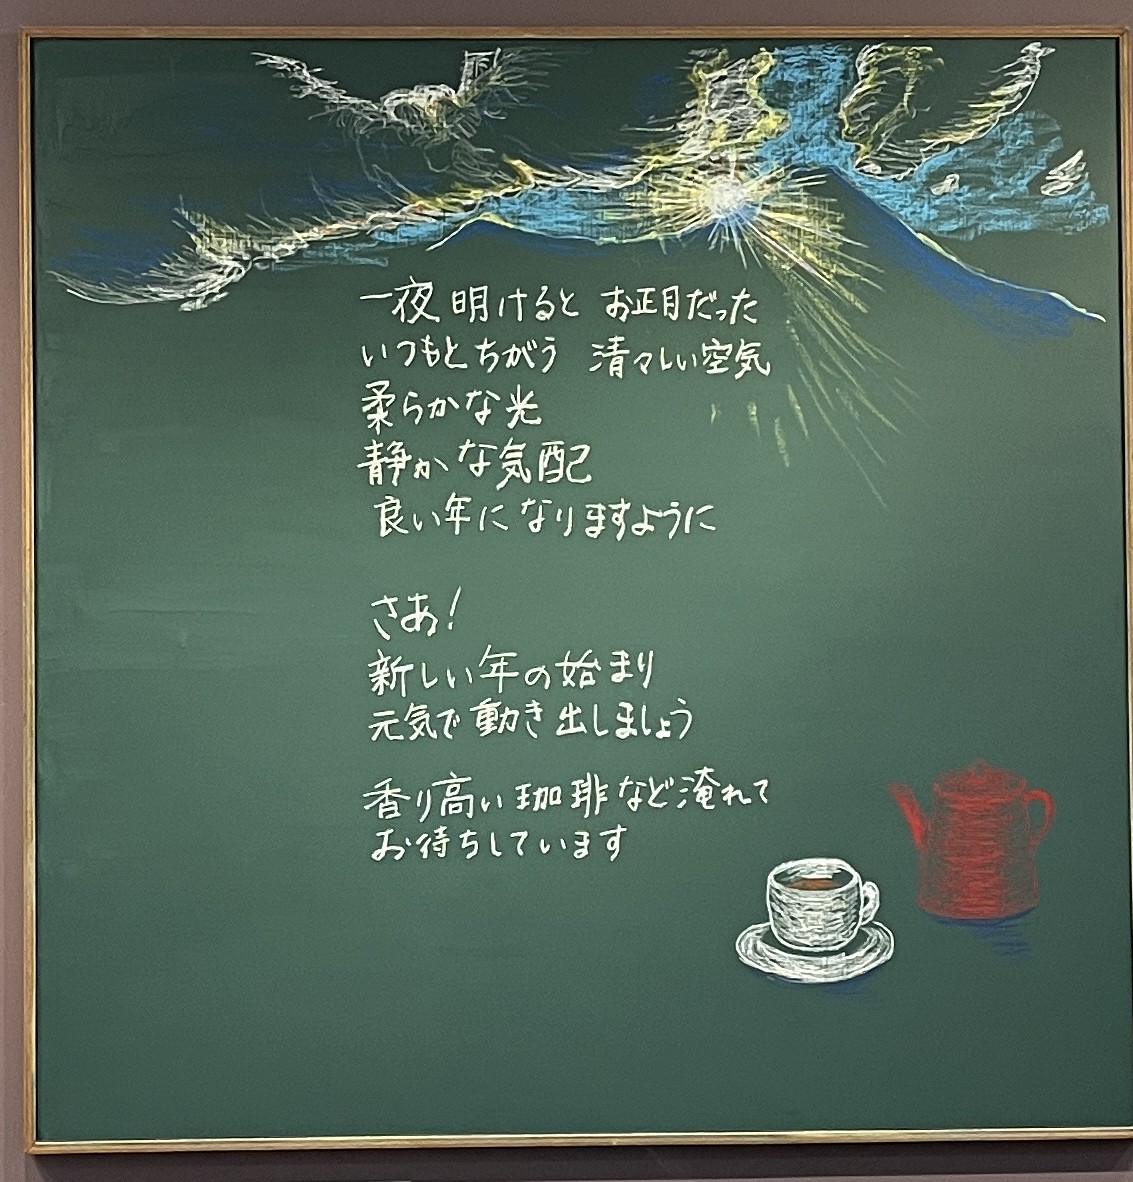 一夜明けると お正月だった
いつもとちがう 清々しい空気
柔らかな光
静かな気配
良い年になりますように
さあ!
新しい年の始まり
元気で動き出しましょう
香り高い珈琲など淹れて
お待ちしています